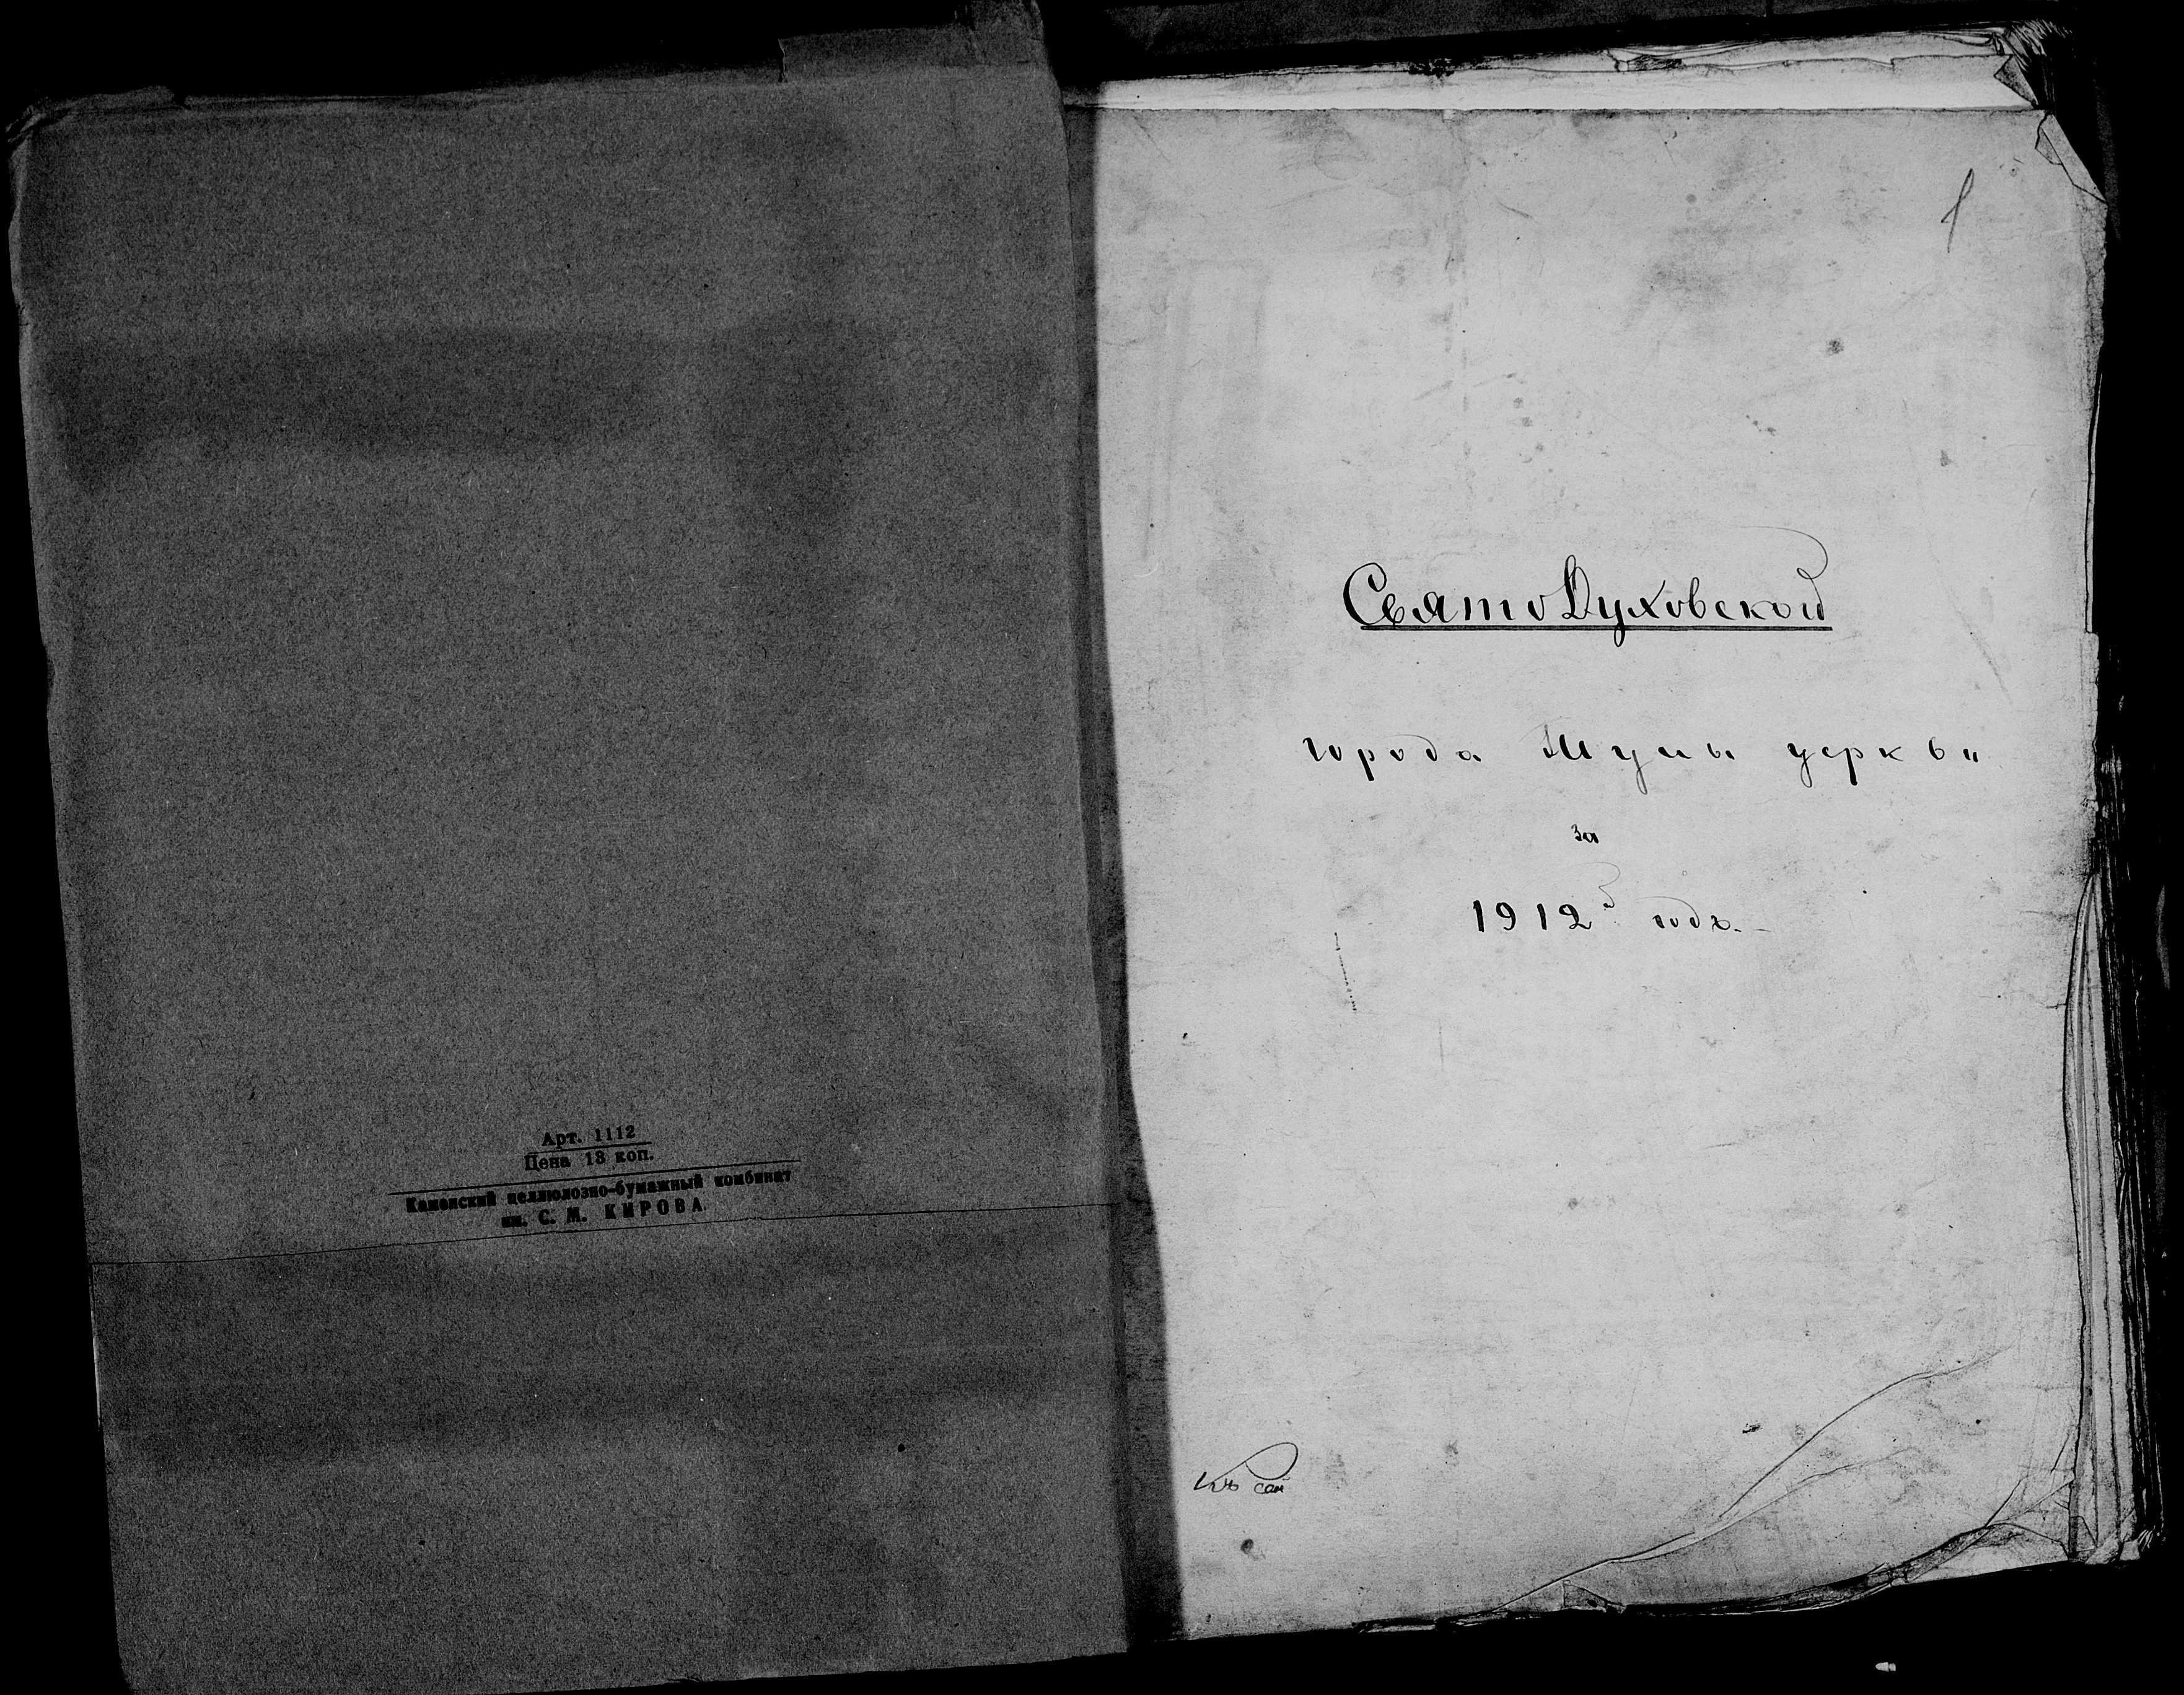 Арт. 1112
Цена 13 коп.
Каменский целлюлозно-бумажный комбинат
им. С. М. КИРОВА
1
СвятоДуховской
города Шуи церкви
за
1912й годъ.